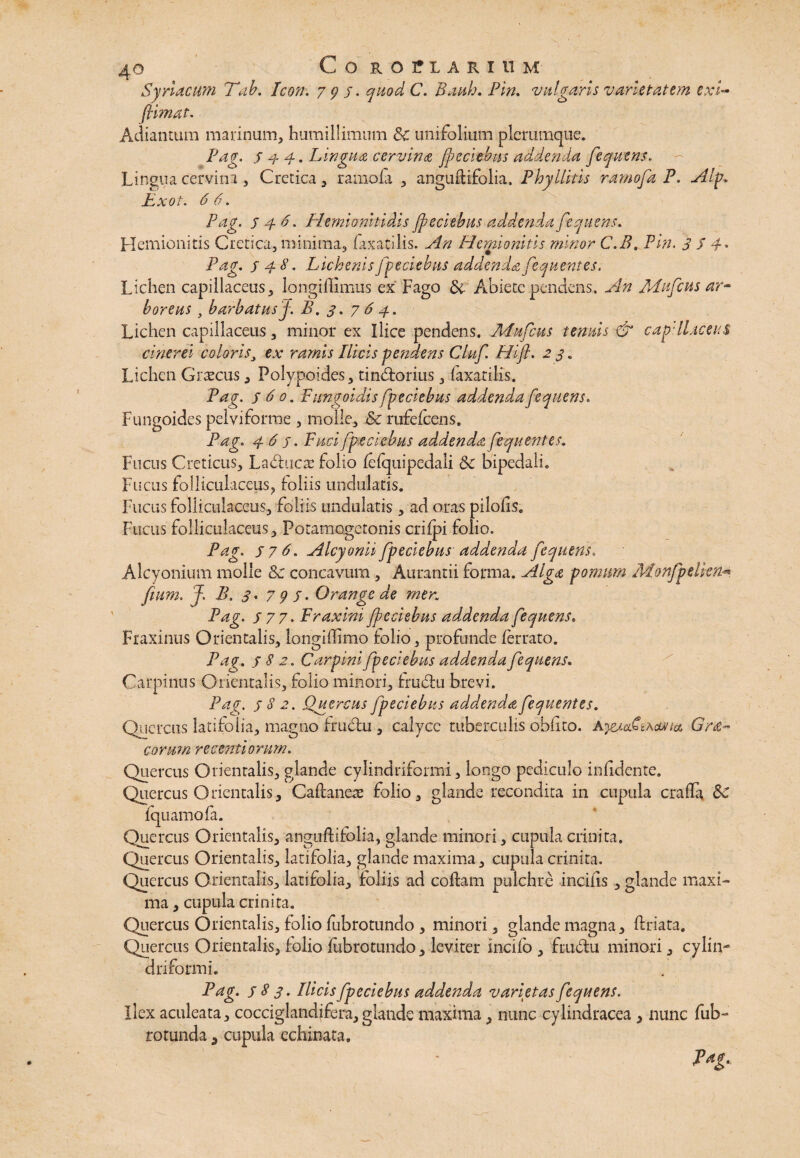 40 COROLLARIUM
Syriacum Tab. Icon. 795. quod C. Bauh. Pin. vulgaris varietatem exi-
ſtimat.
Adiantum marinum, humillimum & unifolium plerumque.
Pag. 544. Linguæ cervinæ ſpeciebus addenda ſequens.
Lingua cervina, Cretica, ramoſa, anguſtifolia. Phyllitis ramoſa P. Alp.
Exot. 66.
Pag. 546. Hemionitidis ſpeciebus addenda ſequens.
Hemionitis Cretica, minima, ſaxatilis. An Hemionitis minor C.B. Pin. 354.
Pag. 548. Lichenis ſpeciebus addendæ ſequentes.
Lichen capillaceus, longiſſimus ex Fago & Abiete pendens. An Muſcus ar-
boreus, barbatus J. B. 3. 764.
Lichen capillaceus, minor ex Ilice pendens. Muſcus tenuis & capillaceus
cinerei coloris, ex ramis Ilicis pendens Cluſ. Hiſt. 23.
Lichen Græcus, Polypoides, tinctorius, ſaxatilis.
Pag. 560. Fungoidis ſpeciebus addenda ſequens.
Fungoides pelviforme, molle, & rufeſcens.
Pag. 465. Fuci ſpeciebus addendæ ſequentes.
Fucus Creticus, Lactucæ folio ſeſquipedali & bipedali.
Fucus folliculaceus, foliis undulatis.
Fucus folliculaceus, foliis undulatis, ad oras piloſis.
Fucus folliculaceus, Potamogetonis criſpi folio.
Pag. 576. Alcyonii ſpeciebus addenda ſequens.
Alcyonium molle & concavum, Aurantii forma. Alga pomum Monſpelien-
ſium. J. B. 3. 795. Orange de mer.
Pag. 577. Fraxini ſpeciebus addenda ſequens.
Fraxinus Orientalis, longiſſimo folio, profunde ſerrato.
Pag. 582. Carpini ſpeciebus addenda ſequens.
Carpinus Orientalis, folio minori, fructu brevi.
Pag. 582. Quercus ſpeciebus addendæ ſequentes.
Quercus latifolia, magno fructu, calyce tuberculis obſito. Græ-
corum recentiorum.
Quercus Orientalis, glande cylindriformi, longo pediculo inſidente.
Quercus Orientalis, Caſtaneæ folio, glande recondita in cupula craſſa &
ſquamoſa.
Quercus Orientalis, anguſtifolia, glande minori, cupula crinita.
Quercus Orientalis, latifolia, glande maxima, cupula crinita.
Quercus Orientalis, latifolia, foliis ad coſtam pulchrè inciſis, glande maxi-
ma, cupula crinita.
Quercus Orientalis, folio ſubrotundo, minori, glande magna, ſtriata.
Quercus Orientalis, folio ſubrotundo, leviter inciſo, fructu minori, cylin-
driformi.
Pag. 583. Ilicis ſpeciebus addenda varietas ſequens.
Ilex aculeata, cocciglandifera, glande maxima, nunc cylindracea, nunc ſub-
rotunda, cupula echinata.
Pag.